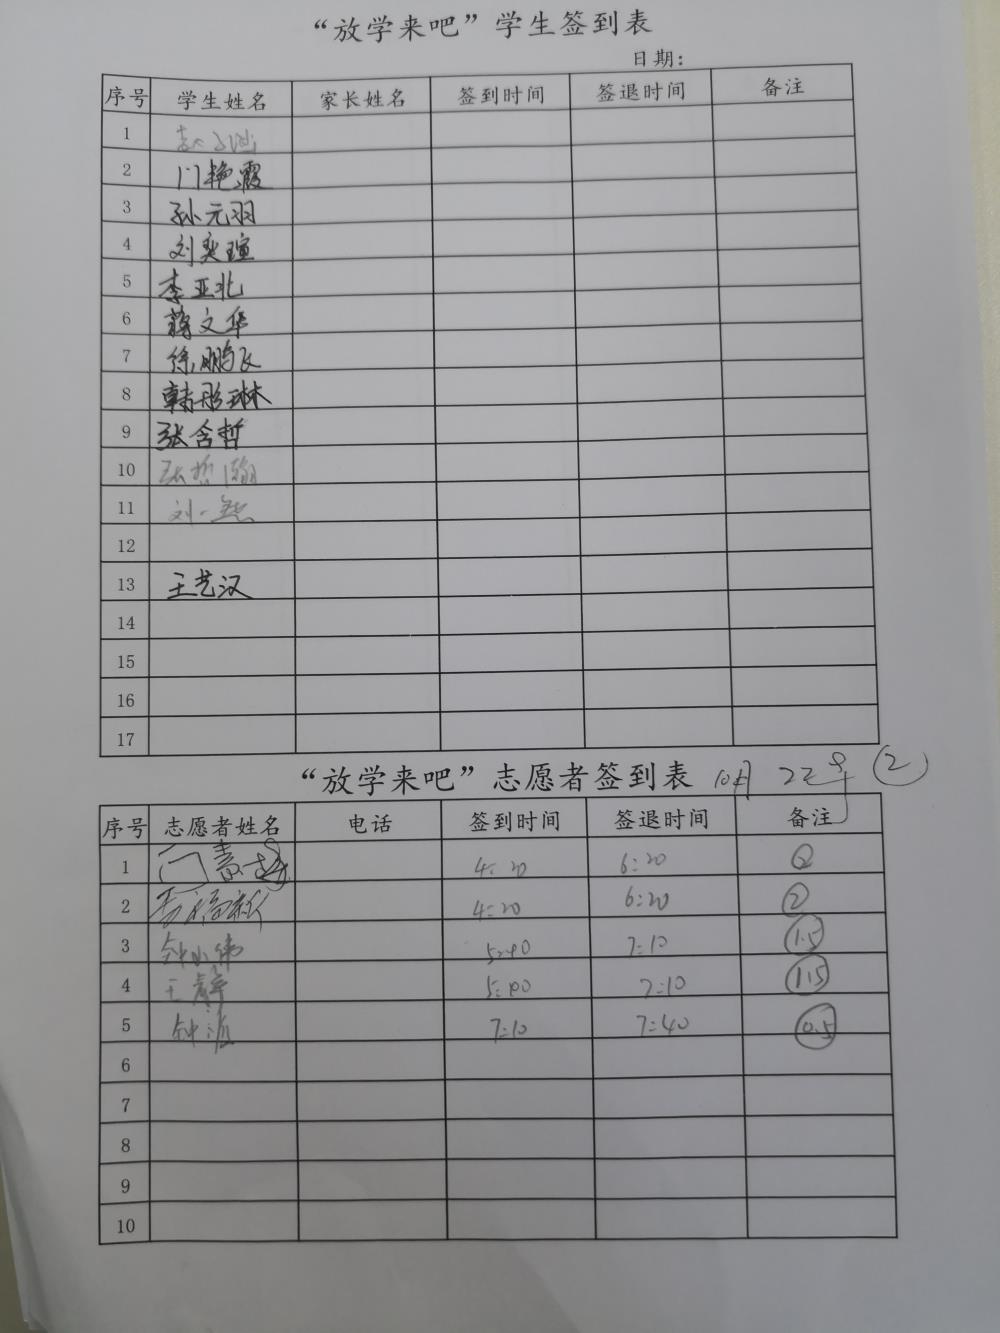 “放学来吧”学生签到表
日期：
序号 学生姓名 家长姓名 签到时间 签退时间 备注
1
2 门艳霞
3 孙元羽
4 刘奕瑄
5 李亚北
6 蒋文华
7 徐鹏飞
8 韩彤琳
9 张含哲
10 张哲瀚
11 刘一
12
13 王艺汉
14
15
16
17
“放学来吧”志愿者签到表 10月22号 2
序号 志愿者姓名 电话 签到时间 签退时间 备注
1 门 4:20 6:20 2
2 4:20 6:20 2
3 钟小伟 5:40 7:10 1.5
4 王 5:40 7:10 1.5
5 钟 7:10 7:40 0.5
6
7
8
9
10